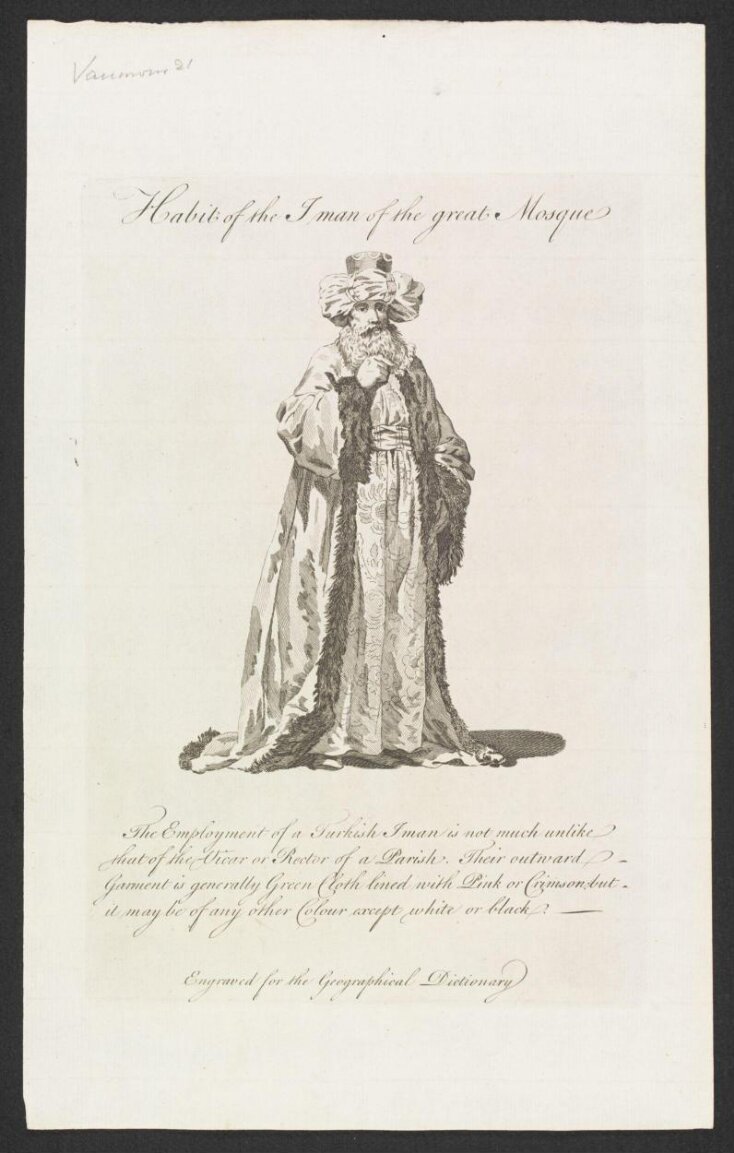 Vanmour 21
Habit of the Iman of the great Mosque
The Employment of a Turkish Iman is not much unlike
that of the Vicar or Rector of a Parish. Their outward
Garment is generally Green Cloth lined with Pink or Crimson, but
it may be of any other Colour except white or black.
Engraved for the Geographical Dictionary